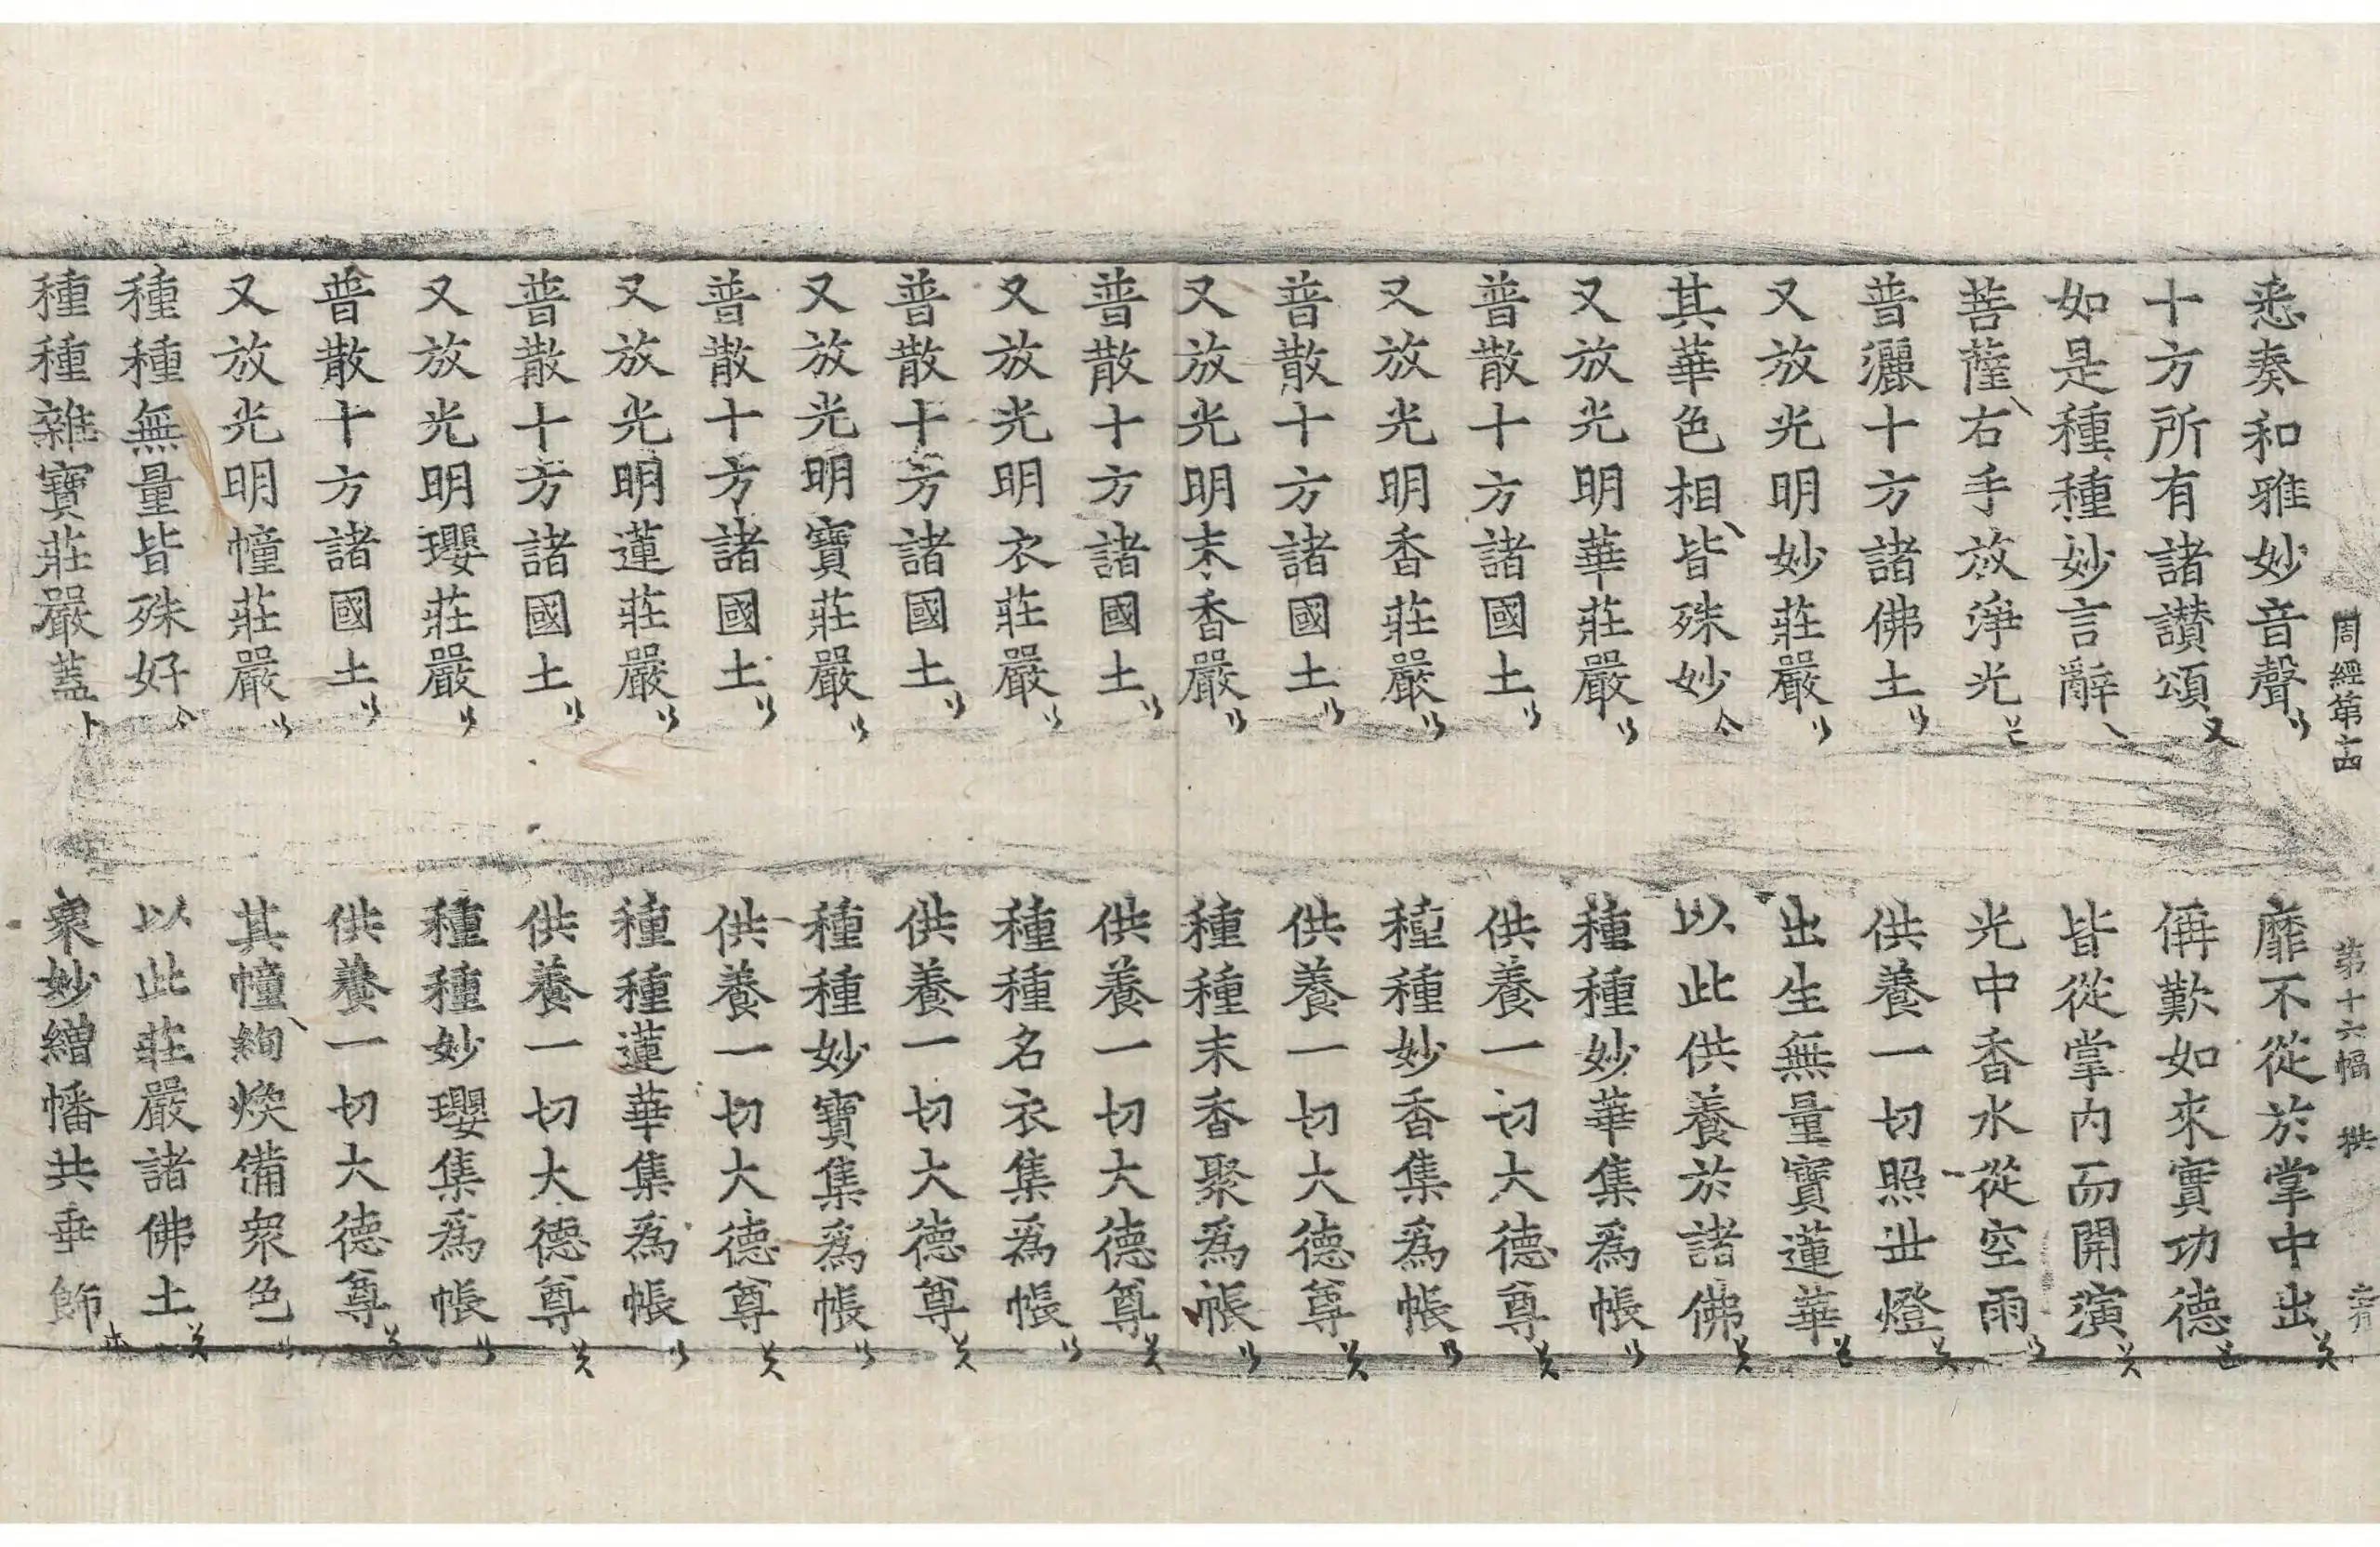 周經第十四 第十六幅
悉奏和雅妙音聲 靡不從於掌中出
十方所有諸讃頌 稱歎如來實功德
如是種種妙言辭 皆從掌内而開演
菩薩右手放淨光 光中香水從空雨
普灑十方諸佛土 供養一切照世燈
又放光明妙莊嚴 出生無量寶蓮華
其華色相皆殊妙 以此供養於諸佛
又放光明華莊嚴 種種妙華集爲帳
普散十方諸國土 供養一切大德尊
又放光明香莊嚴 種種妙香集爲帳
普散十方諸國土 供養一切大德尊
又放光明末香嚴 種種末香聚爲帳
普散十方諸國土 供養一切大德尊
又放光明衣莊嚴 種種名衣集爲帳
普散十方諸國土 供養一切大德尊
又放光明寶莊嚴 種種妙寶集爲帳
普散十方諸國土 供養一切大德尊
又放光明蓮莊嚴 種種蓮華集爲帳
普散十方諸國土 供養一切大德尊
又放光明瓔莊嚴 種種妙瓔集爲帳
普散十方諸國土 供養一切大德尊
又放光明幢莊嚴 其幢絢煥備衆色
種種無量皆殊好 以此莊嚴諸佛土
種種雜寶莊嚴蓋 衆妙繒幡共垂飾